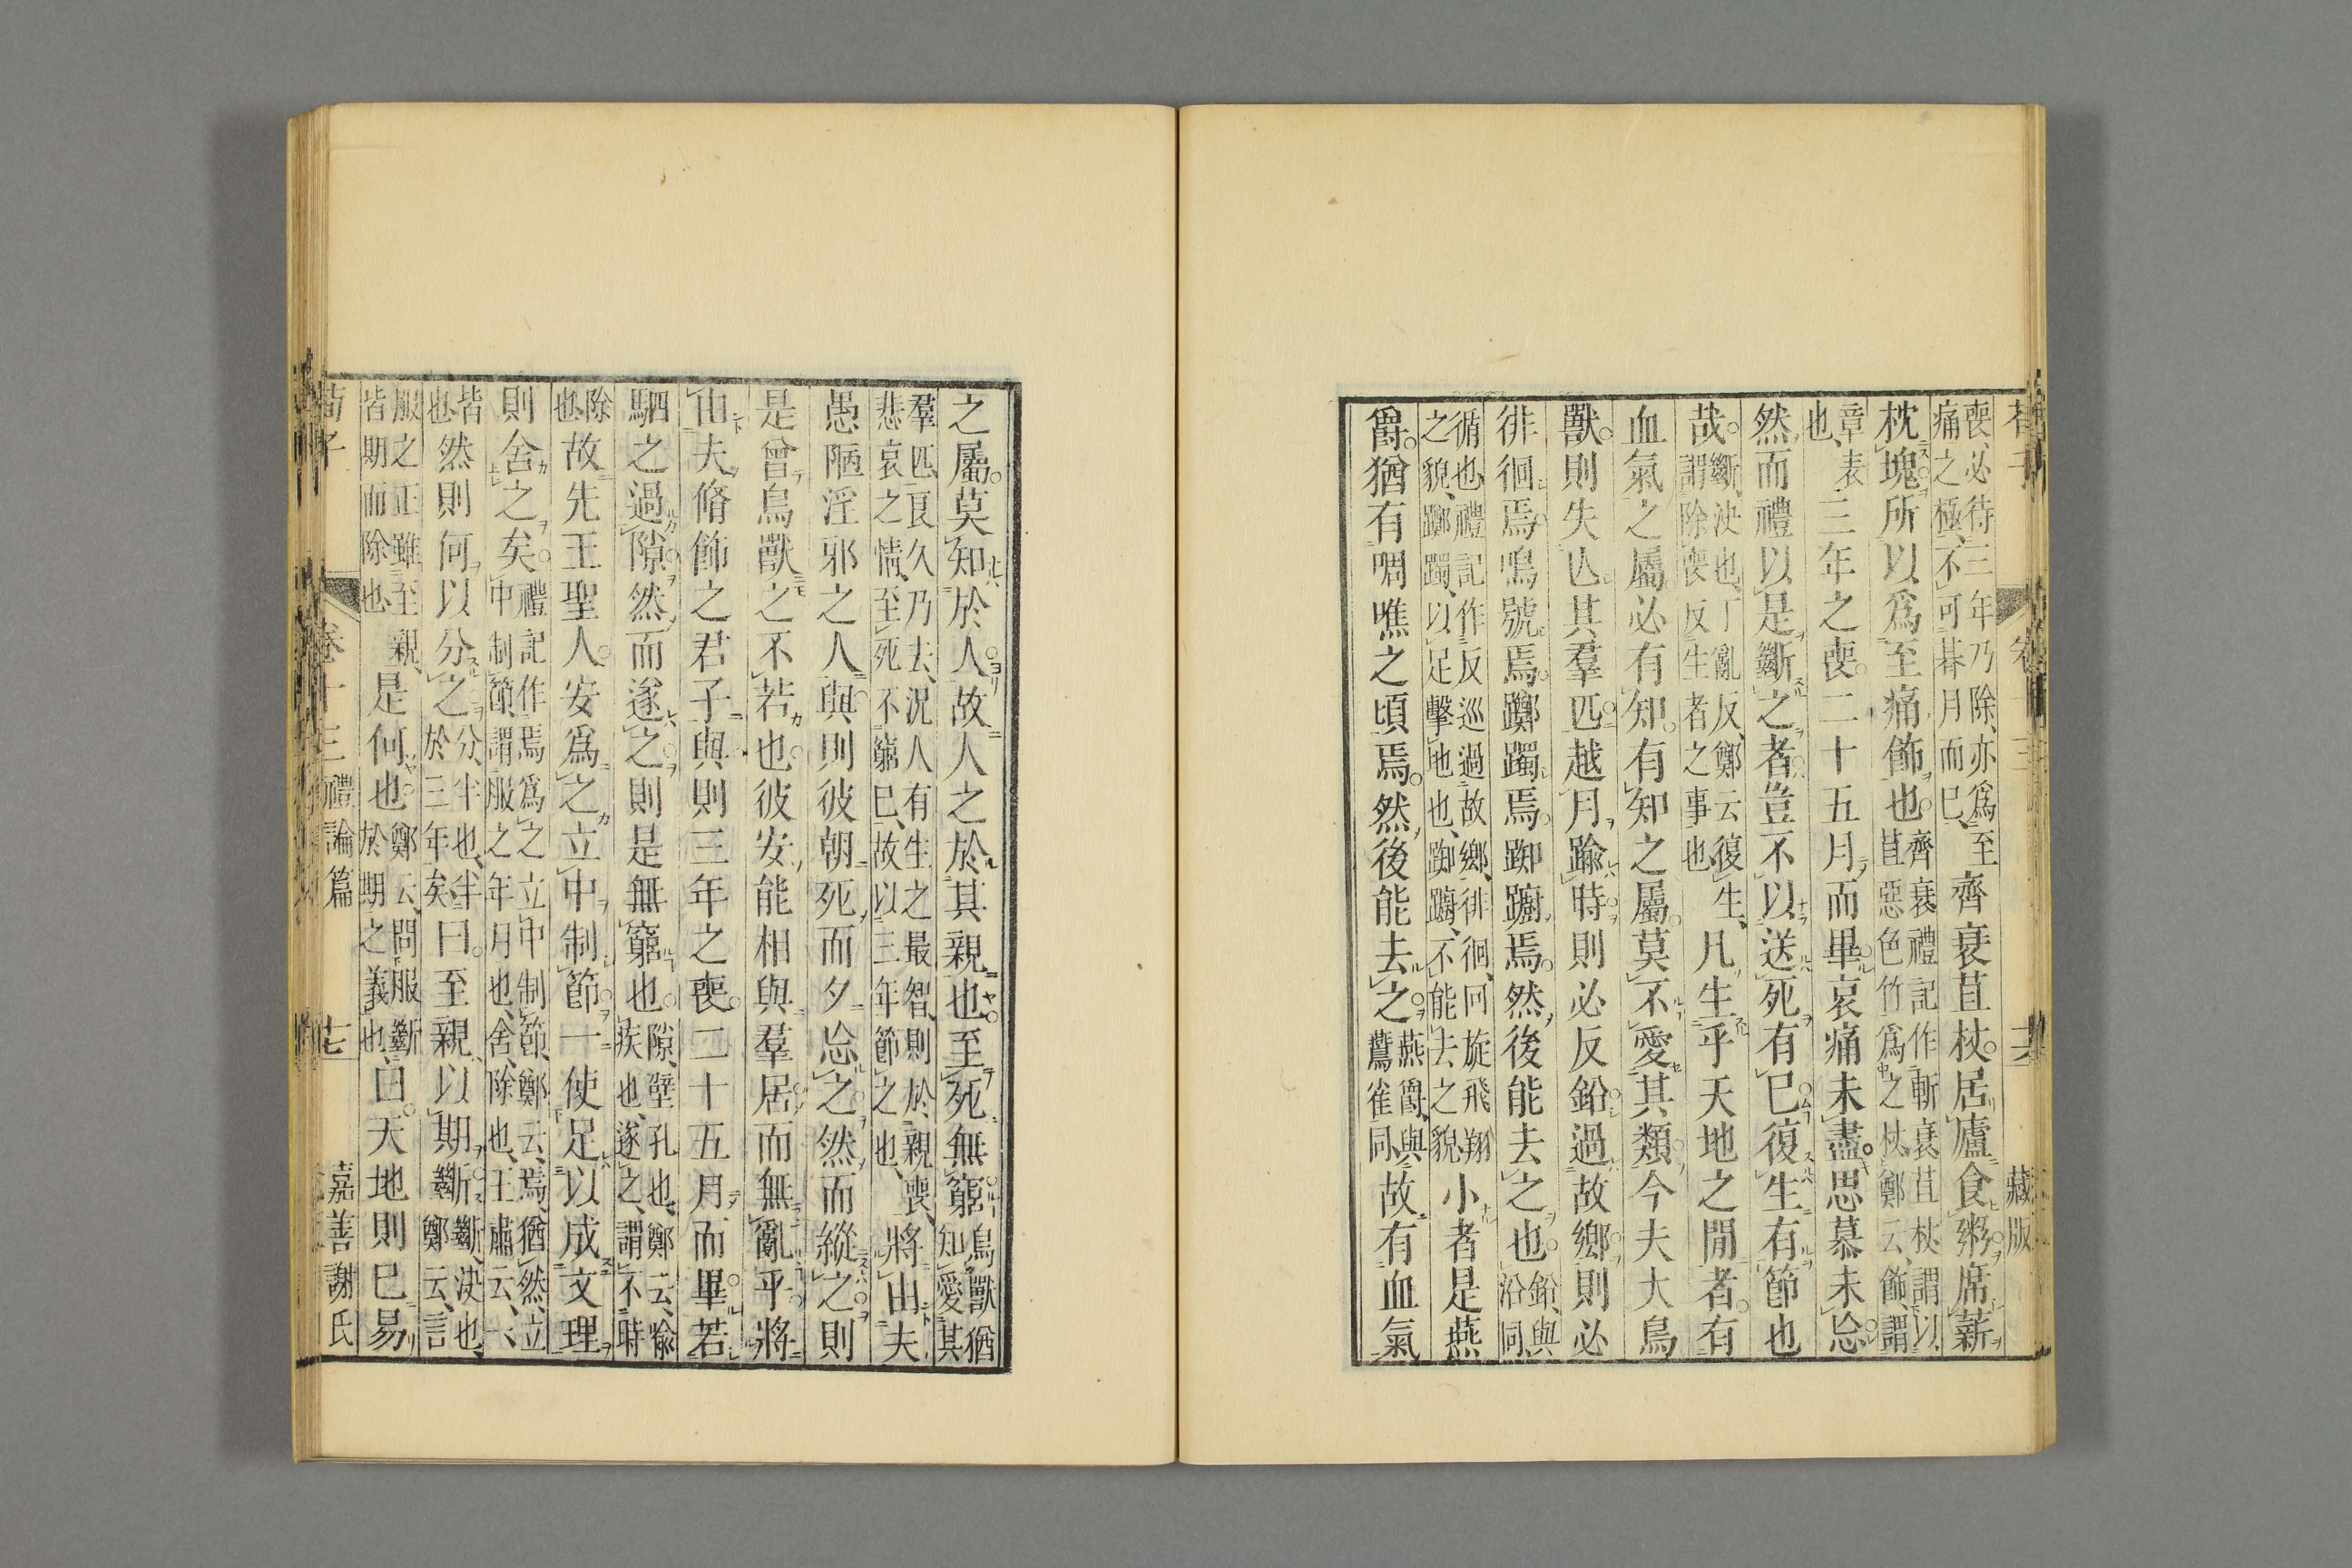 喪、必待三年乃除、亦爲至
痛之極、不可朞月而已、
齊衰苴杖。居廬食粥席薪
枕塊所以爲至痛飾也。
齊衰禮記作斬衰苴杖謂以
苴惡色竹爲之杖、鄭云、飾、謂
章表
也、
三年之喪。二十五月而畢哀痛未盡思慕未忘
然而禮以是斷之者豈不以送死有已復生有節也
哉。
斷、決也、丁亂反、鄭云復生、
謂除喪反生者之事也
凡生乎天地之閒者。有
血氣之屬必有知。有知之屬。莫不愛其類今夫大鳥
獸。則失亾其羣匹越月踰時則必反鉛過故鄉則必
徘徊焉鳴號焉。躑躅焉。踟躕焉。然後能去之也。
鉛、與
沿同、
循也、禮記作反巡過故鄉、徘徊、回旋飛翔
之貌、躑躅、以足擊地也、踟躕、不能去之貌
小者是燕
爵。猶有啁噍之頃焉。然後能去之。
燕爵、與
鷰雀同、
故有血氣
之屬。莫知於人故人之於其親也至死無窮
鳥獸猶
知愛其
羣匹、良久乃去、況人有生之最智、則於親喪、
悲哀之情、至死不窮已、故以三年節之也、
將由夫
愚陋淫邪之人與則彼朝死而夕忘之然而縱之則
是曾鳥獸之不若也彼安能相與羣居而無亂乎將
由夫脩飾之君子與則三年之喪。二十五月而畢若
駟之過隙然而遂之則是無窮也
隙、壁孔也、鄭云、喻
疾也、遂之、謂不時
除
也、
故先王聖人安爲之立中制節一使足以成文理
則舍之矣。
禮記作焉爲之立中制節、鄭云、焉、猶然、立
中制節、謂服之年月也、舍、除也、王肅云、一、
皆
也、
然則何以分之
分、半也、半
於三年矣
曰。至親以期斷
斷、決也、
鄭云、言
服之正雖至親、
皆期而除也、
是何也。
鄭云、問服斷
於期之義也、
曰。天地則已易
荀子
卷十三 禮論篇
十七
嘉善謝氏
藏版